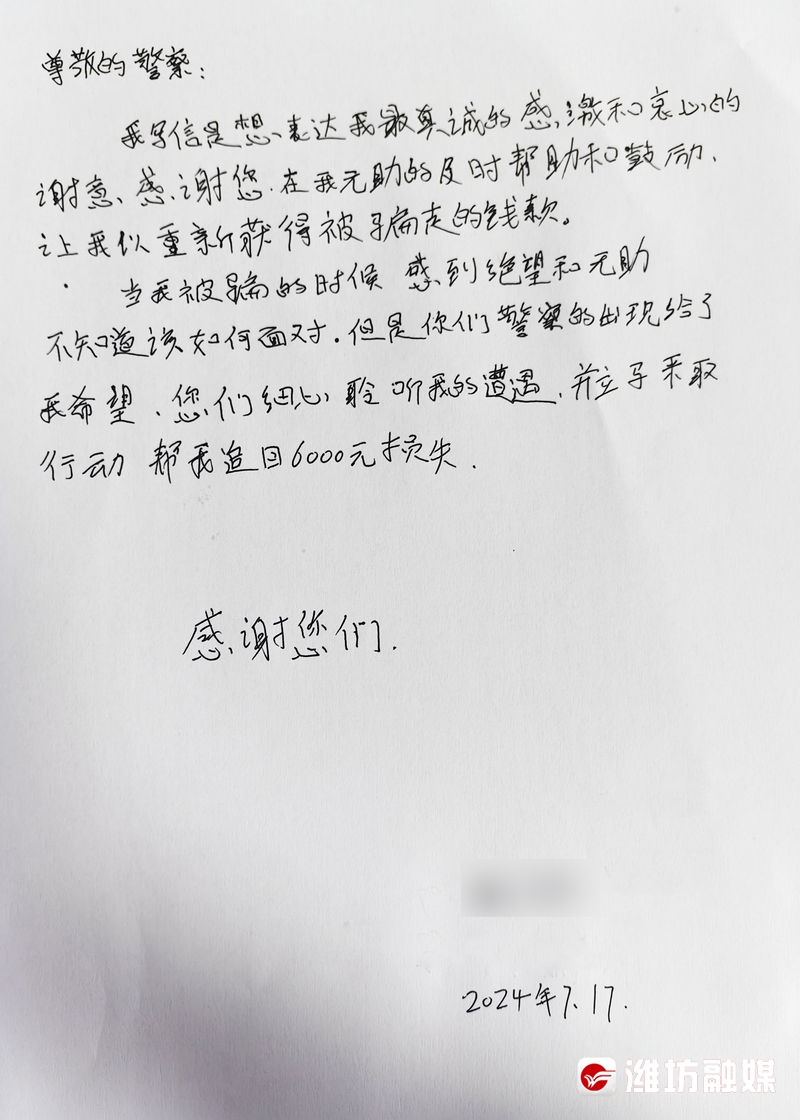 尊敬的警察：
我写信是想表达我最真诚的感激和衷心的
谢意、感谢您.在我无助的及时帮助和鼓励.
让我似重新获得被骗走的钱款。
当我被骗的时候 感到绝望和无助
不知道该如何面对.但是你们警察的出现给了
我希望.您们细心聆听我的遭遇.并立马采取
行动 帮我追回6000元损失.
感谢您们.
2024年7.17.
潍坊融媒